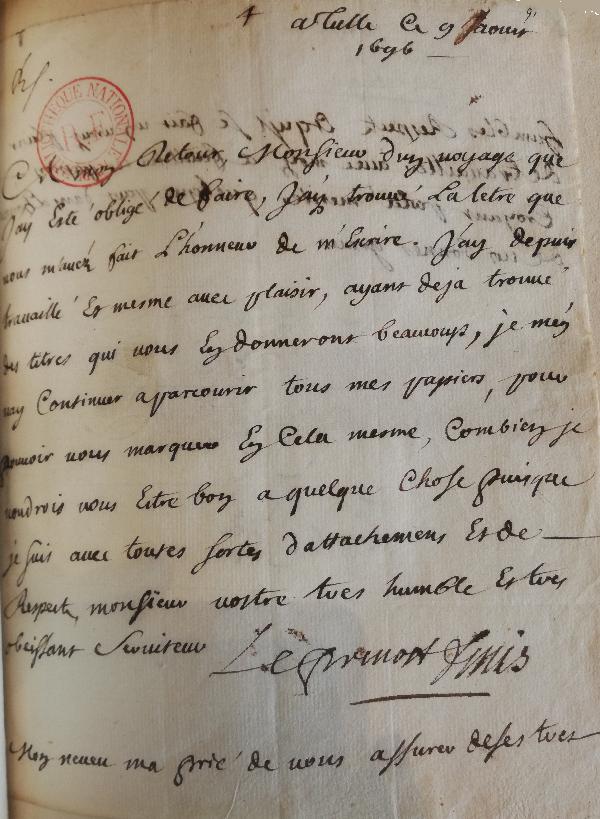 a Tulle Ce 9 aoust
1696
Retour, Monsieur duy voyage que
Jay Esté obligé de faire, J'ay trouvé La letre que
vous m'avez fait L'honneur de m'Escrire. J'ay depuis
travaillé Et mesme avec plaisir, ayant deja trouvé
des titres qui vous En donneront beaucoup, je m'en
vay Continuer a parcourir tous mes papiers, pour
pouvoir vous marquer En Cela mesme, Combien je
voudrois vous Estre bon a quelque Chose puisque
je suis avec toutes sortes d'attachement Et de
Respect, monsieur vostre tres humble Et tres
obeissant Serviteur
Mon neveu ma prié de vous assurer de ses tres